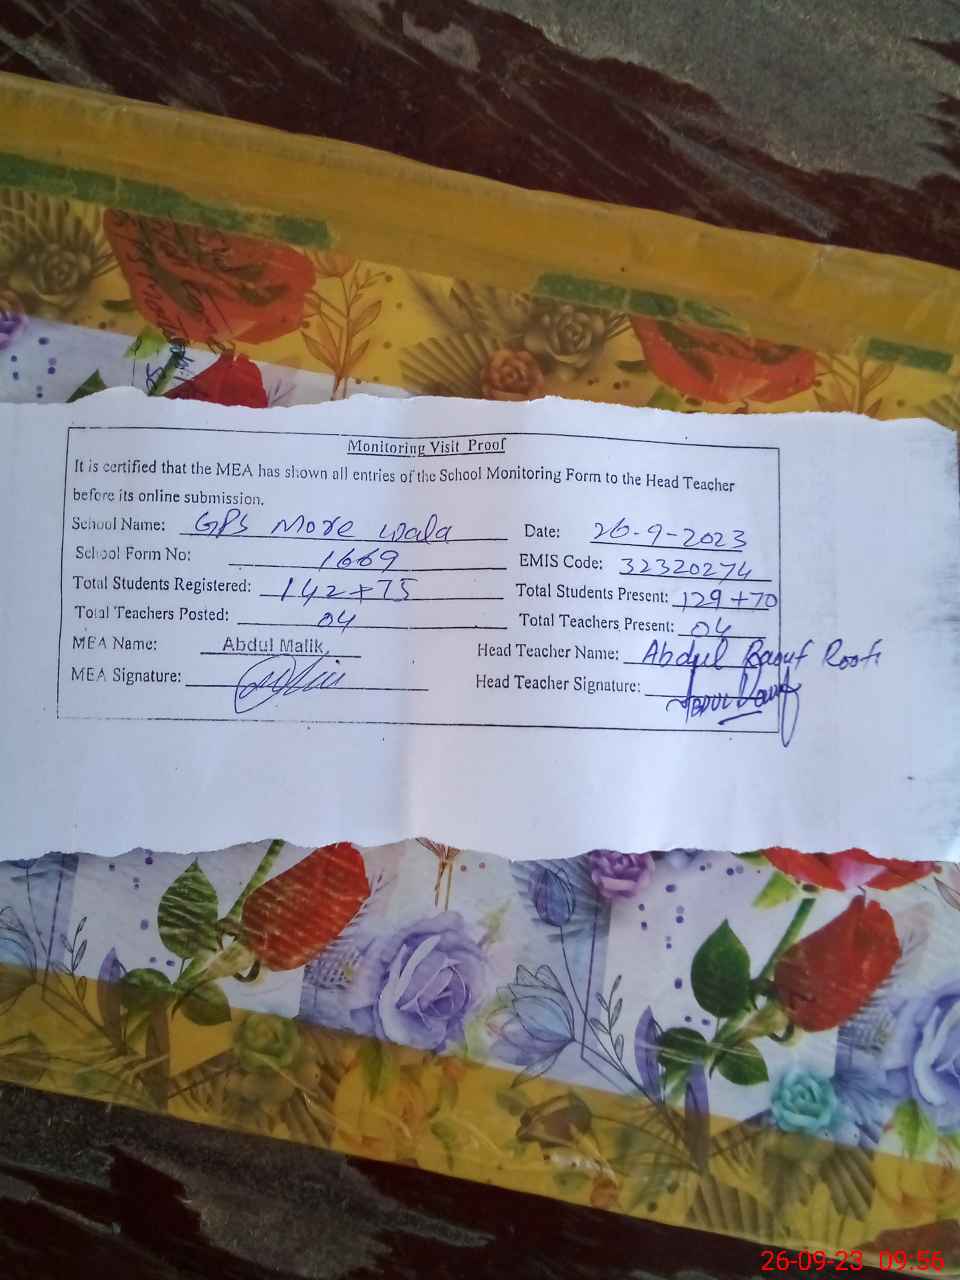 Monitoring Visit Proof
It is certified that the MEA has shown all entries of the School Monitoring Form to the Head Teacher
before its online submission.
School Name: GPS More wala Date: 26-9-2023
School Form No: 1669 EMIS Code: 32320274
Total Students Registered: 142+75 Total Students Present: 129+70
Total Teachers Posted: 04 Total Teachers Present: 04
MEA Name: Abdul Malik, Head Teacher Name: Abdul Raouf Roofi
MEA Signature: Head Teacher Signature: Abdul Rauf
26-09-23 09:56